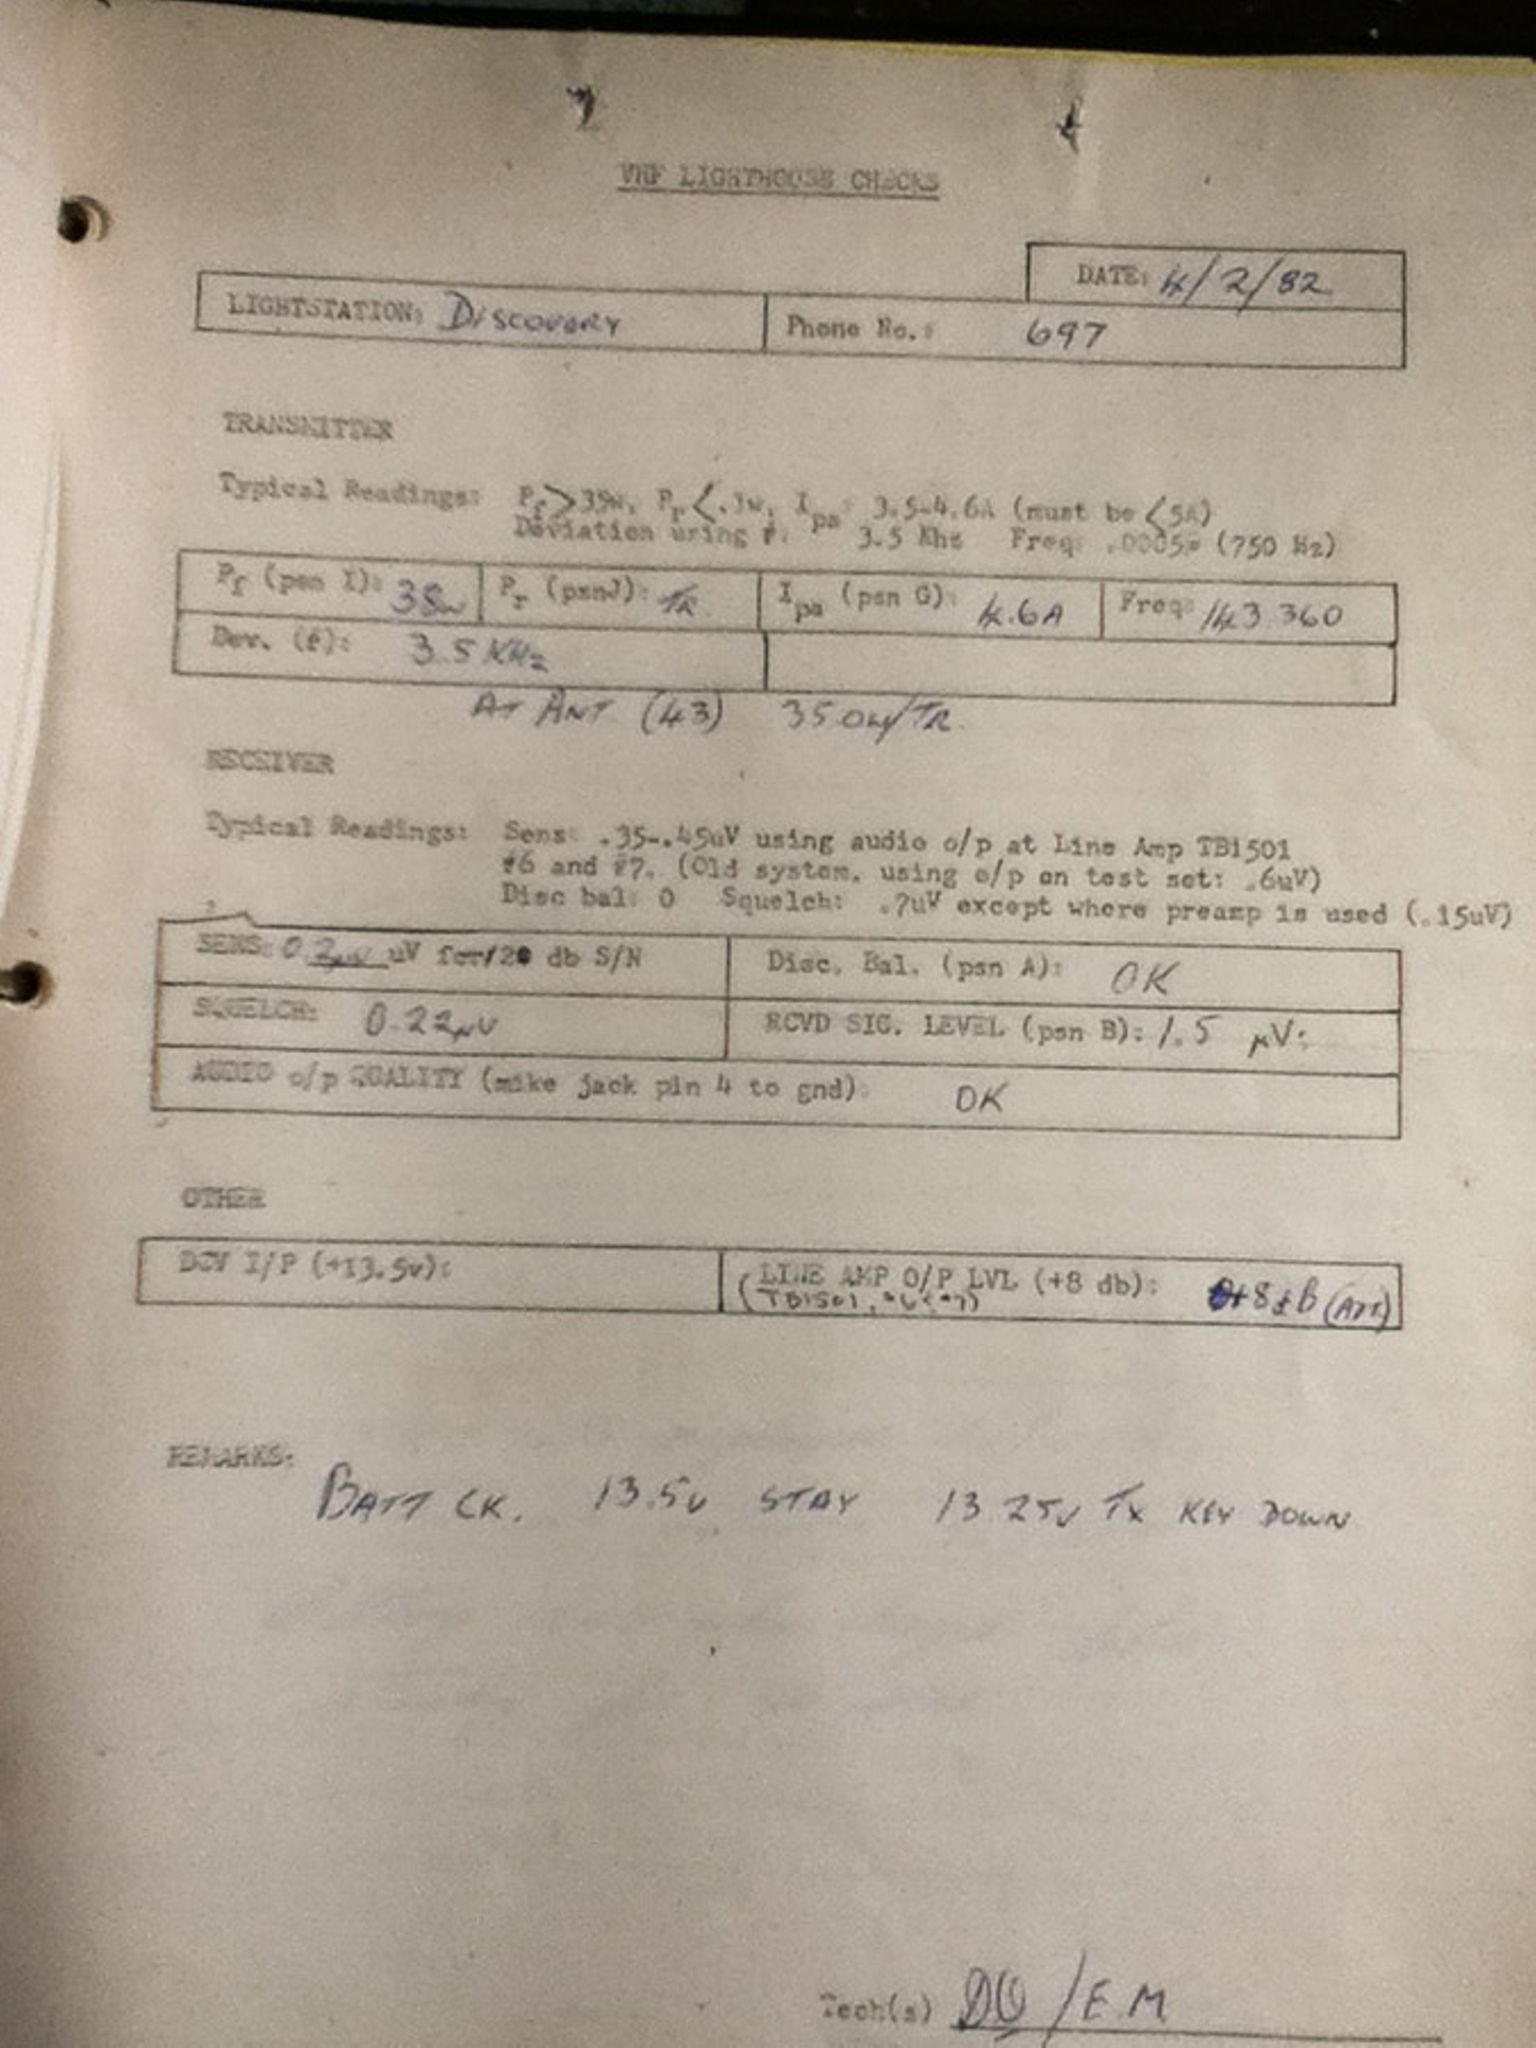 VHF LIGHTHOUSE CHECKS
DATE: 4/2/82
LIGHTSTATION: DISCOVERY Phone No.: 697
TRANSMITTER
Typical Readings: Pf>35w, Pr<.1w, Ipa: 3.5-4.6A (must be <5A)
Deviation using f: 3.5 Khz Freq: .0005% (750 Hz)
Pf (psn I): 38w Pr (psnJ): TR Ipa (psn G): 4.6A Freq: 143.360
Dev. (f): 3.5 KHz
AT ANT (43) 35.0w/TR.
RECEIVER
Typical Readings: Sens: .35-.45uV using audio o/p at Line Amp TB1501
#6 and #7. (Old system, using o/p on test set: .6uV)
Disc bal: 0 Squelch: .7uV except where preamp is used (.15uV)
SENS: 0.2µv uV for 20 db S/N Disc. Bal. (psn A): OK
SQUELCH: 0.22µV RCVD SIG. LEVEL (psn B): 1.5 µV:
AUDIO o/p QUALITY (mike jack pin 4 to gnd): OK
OTHER
DCV I/P (+13.5v): LINE AMP O/P LVL (+8 db): +8dB (ATT)
(TB1501, #6 #7)
REMARKS:
BATT CK. 13.5v STBY 13.25v Tx KEY DOWN
Tech(s) DO /E.M